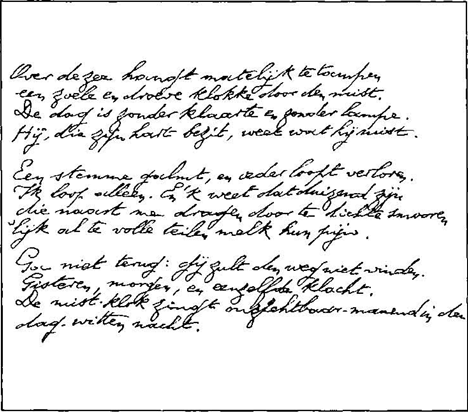 Over de zee hangt matelijk te tampen
een zoele en droeve klokke door den mist.
De dag is zonder klaarte en zonder lampe.
Hij, die zijn hart bezit, weet wat hij mist.
Een stemme galmt, en ieder loopt verloren.
Ik loop alleen. En 'k weet dat duizend zijn
die naast me dragen door te dichte smooren
lijk al te volle teilen melk hun pijn.
Ga niet terug: gij zult den weg niet vinden.
Gisteren, morgen, en eenzelfde klacht.
De mist-klok zingt onzichtbaar-manend in den
dag-witten nacht.